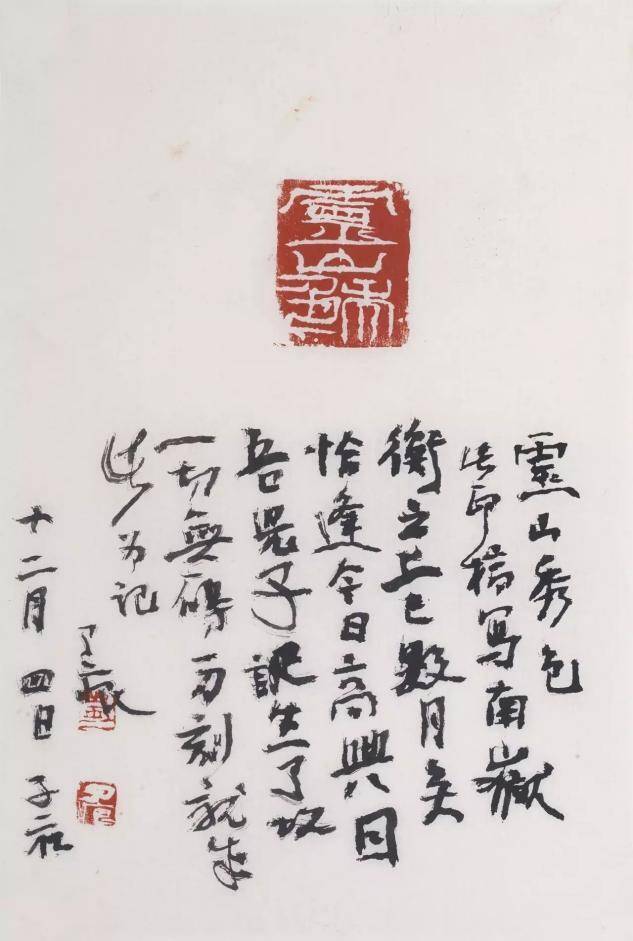 靈山秀色
靈山秀色
此印稿寫南嶽
衡之上已數月矣
恰逢今日高興因
吾兒子誕生了故
一切無刻就成
此为记
十二月四日子